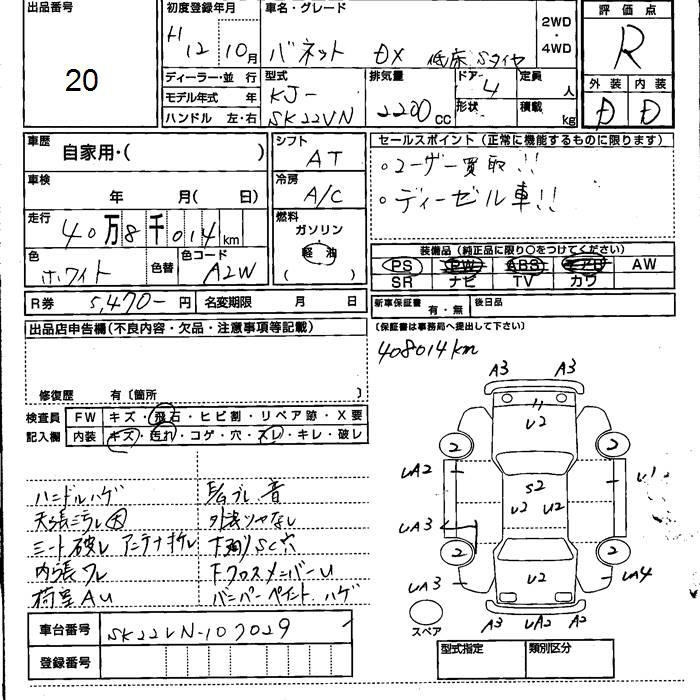 出品番号
20
初度登録年月
H 12 10月
車名・グレード
バネット DX 低床 Sタイヤ
2WD・4WD
評価点
R
ディーラー・並 行
モデル年式 年
ハンドル 左・右
型式
KJ-
SK22VN
排気量
2200cc
ドア
4
形状
定員
人
積載
kg
外装 内装
D D
車歴
自家用・( )
車検
年 月( 日)
走行
40万8千014km
色
ホワイト
色替
色コード
A2W
シフト
AT
冷房
A/C
燃料
ガソリン
軽油
( )
セールスポイント(正常に機能するものに限ります)
。ユーザー買取!!
。ディーゼル車!!
装備品(純正品に限り○をつけてください)
PS PW ABS エアB AW
SR ナビ TV カワ
R券 5,470- 円
名変期限 月 日
新車保証書 有・無
後日品
(保証書は事務局へ提出して下さい)
出品店申告欄(不良内容・欠品・注意事項等記載)
修復歴 有〔箇所 〕
408014km
検査員
記入欄
FW キズ・飛石・ヒビ割・リペア跡・X要
内装 キズ・汚れ・コゲ・穴・スレ・キレ・破レ
ハンドルハゲ
シート破レ アンテナ折レ
内張ワレ
荷室AU
下廻りSC穴
下クロスメンバーU
バンパーペイントハゲ
車台番号 SK22VN-107029
登録番号
A3 A3
U2
2 2
UA2 U1
S2
U2 U2
UA3
2 2
UA3 U2 UA4
スペア
A3 UA2 A2
型式指定 類別区分